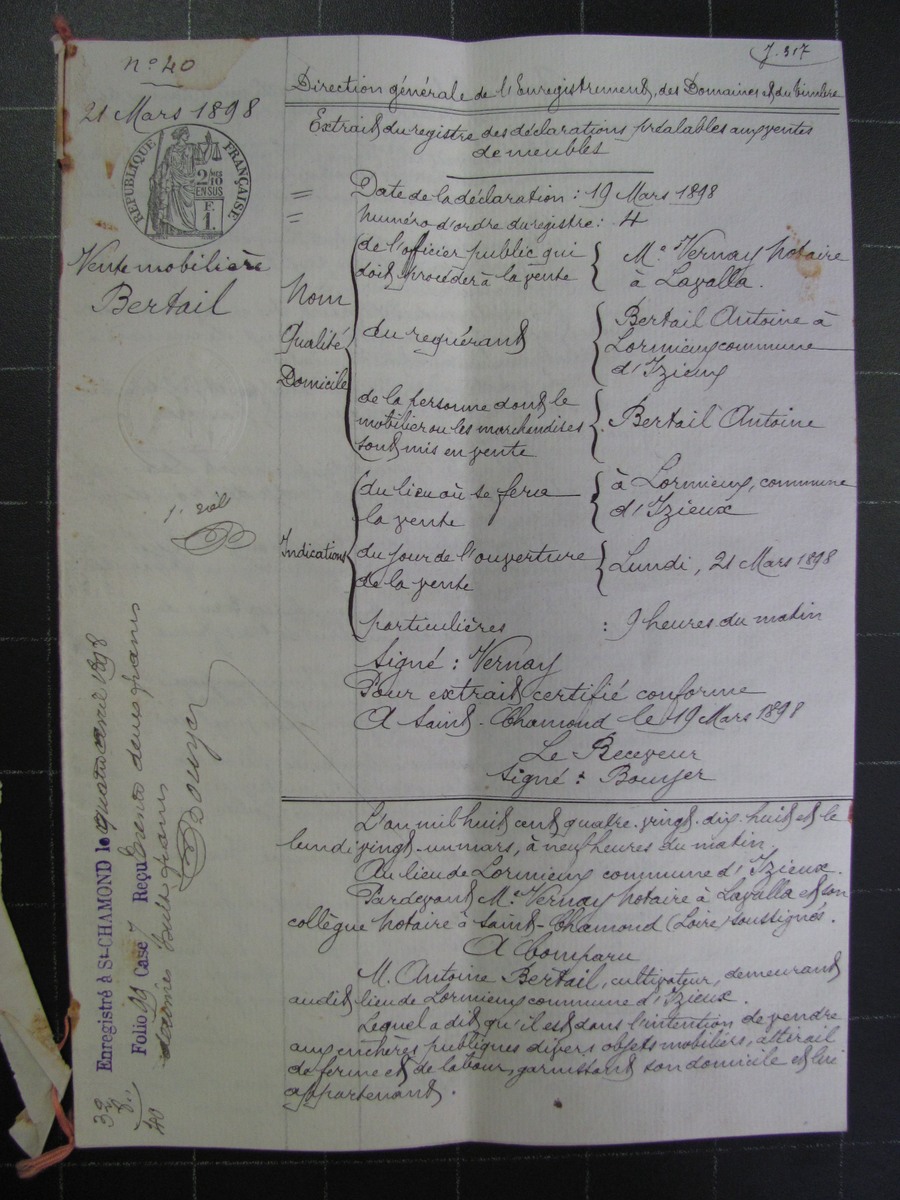 J. 317
n° 40
21 Mars 1898
RÉPUBLIQUE FRANÇAISE
2/10 EN SUS
F. 1.
Vente mobilière
Bertail
Direction générale de l'Enregistrement, des Domaines et du timbre
Extrait du registre des déclarations préalables aux ventes
de meubles
Date de la déclaration : 19 Mars 1898
Numéro d'ordre du registre : 4
Nom
Qualité
Domicile
de l'officier public qui
doit procéder à la vente
Me. Vernay Notaire
à Lavalla.
du requérant
Bertail Antoine à
Lormieux commune
d'Izieux
de la personne dont le
mobilier ou les marchandises
sont mis en vente
Bertail Antoine
Indications
du lieu où se fera
la vente
à Lormieux, commune
d'Izieux
du jour de l'ouverture
de la vente
Lundi, 21 Mars 1898
particulières : 9 heures du matin
Signé : Vernay
Pour extrait certifié conforme
A Saint-Chamond le 19 Mars 1898
Le Receveur
Signé : Bouyer
L'an mil huit cent quatre-vingt-dix-huit et le
lundi vingt-un mars, à neuf heures du matin,
Au lieu de Lormieux commune d'Izieux.
Pardevant Me. Vernay Notaire à Lavalla et son
collègue Notaire à Saint-Chamond (Loire) soussignés.
A Comparu
M. Antoine Bertail, cultivateur, demeurant
audit lieu de Lormieux commune d'Izieux.
Lequel a dit qu'il est dans l'intention de vendre
aux enchères publiques divers objets mobiliers, attirail
de ferme et de labour, garnissant son domicile et lui
appartenant.
Enregistré à St-CHAMOND le quatre avril 1898
Folio 99 Case 7 Reçu trente deux francs
décimes huit francs
Bouyer
32
8
40